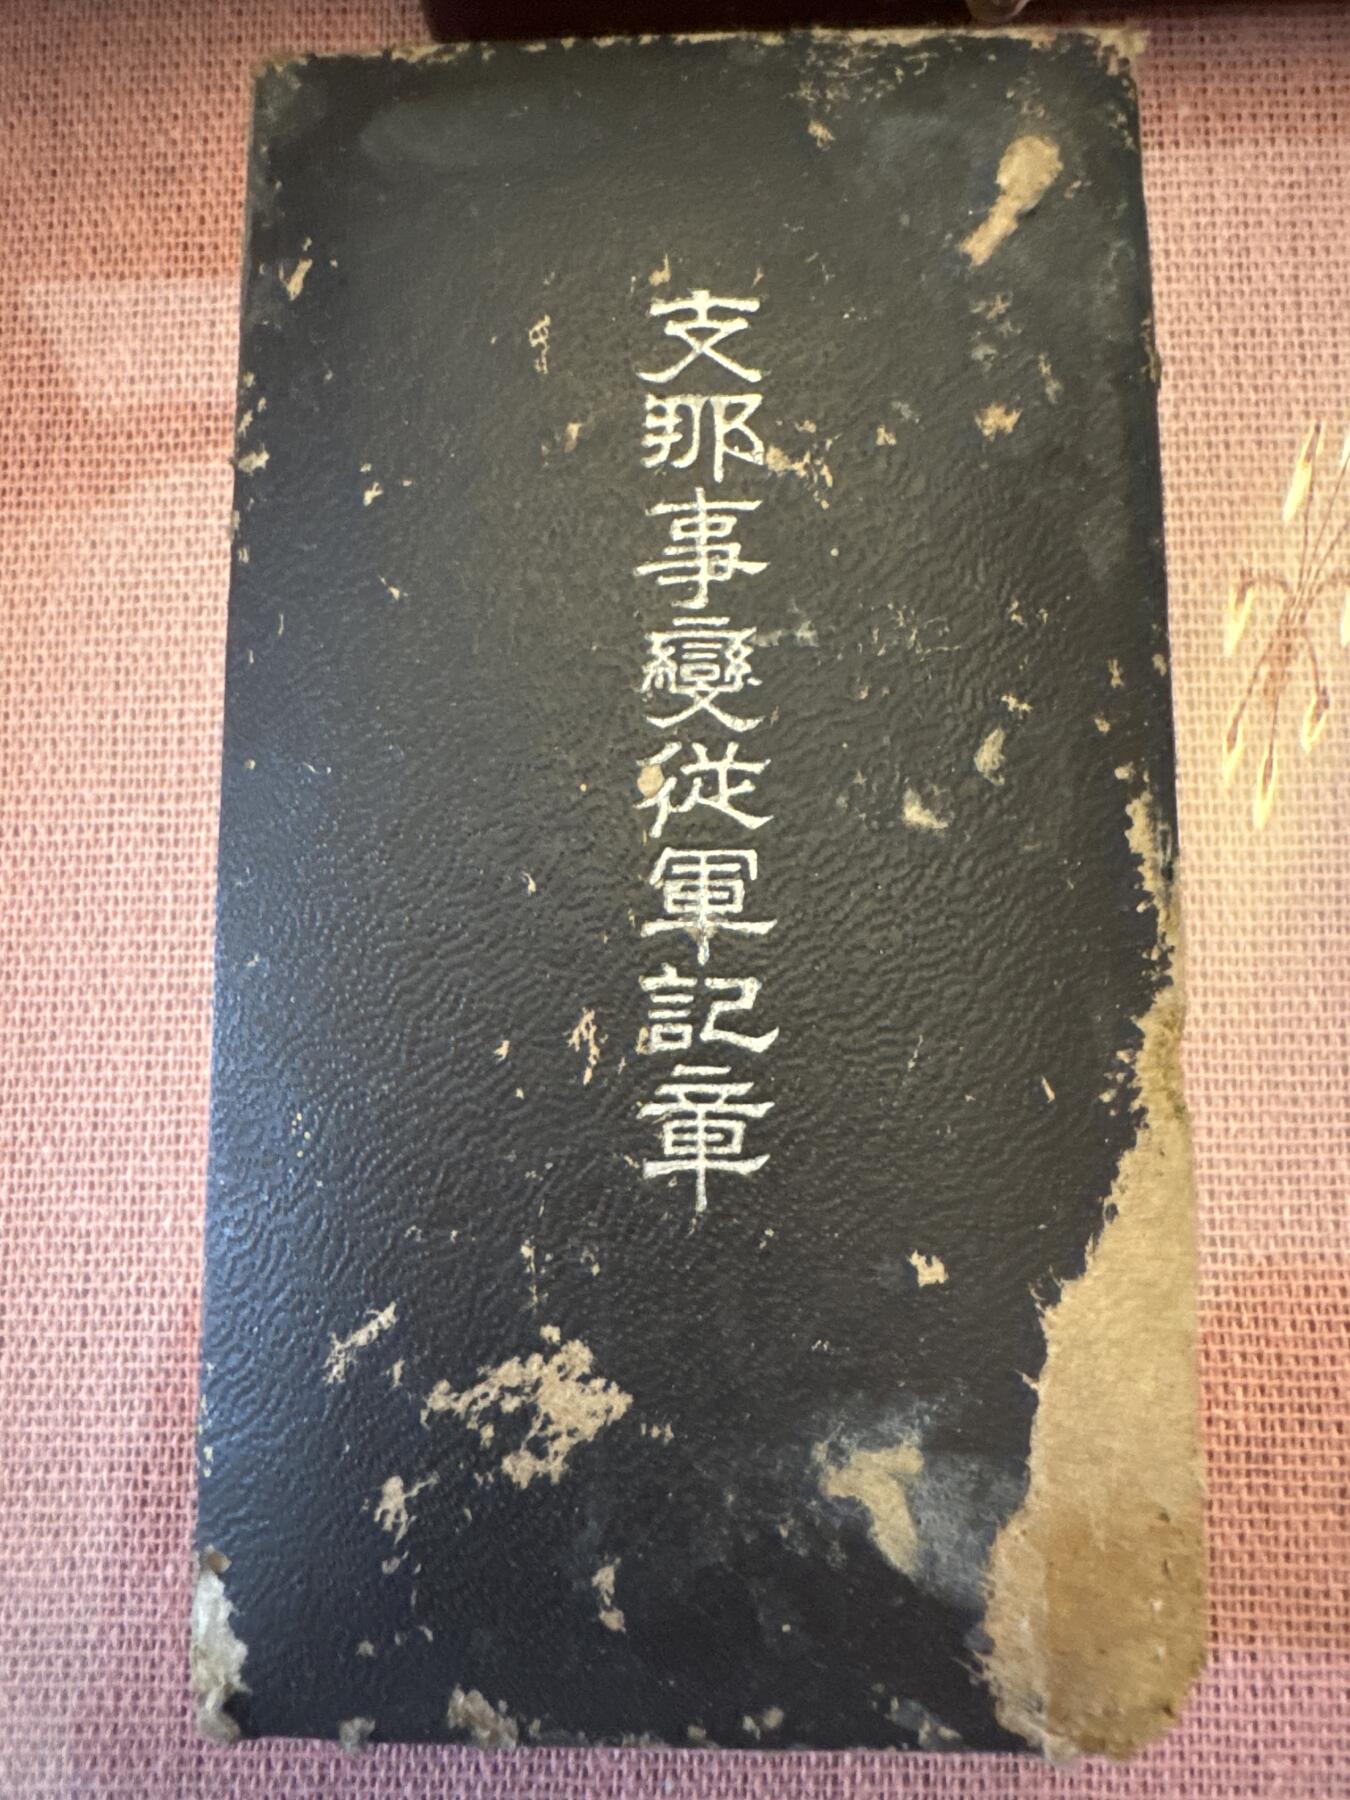 支那事變従軍記章